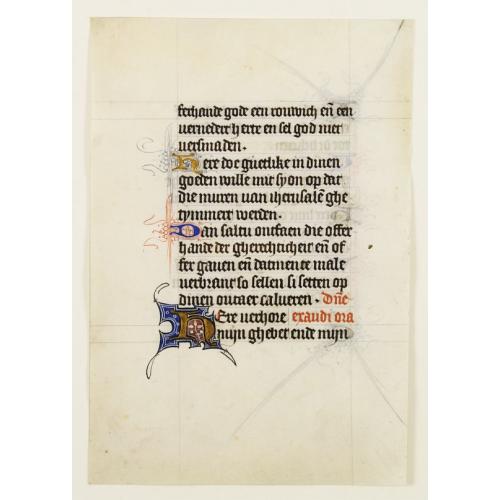 ferhande gode een rouwich eñ een
verneder herte en sel god niet
versmaden.
Here doe guetlike in dinen
goeden wille mit syon op dat
die muren van iherusalẽ ghe
tymmert werden.
Dan saltu ontfaen die offer
hande der gherechticheit eñ of
fer gauen eñ datmen te male
verbrant so sellen si setten op
dinen outaer calueren. Dñe
Here verhore exaudi ora
mijn ghebet ende mijn